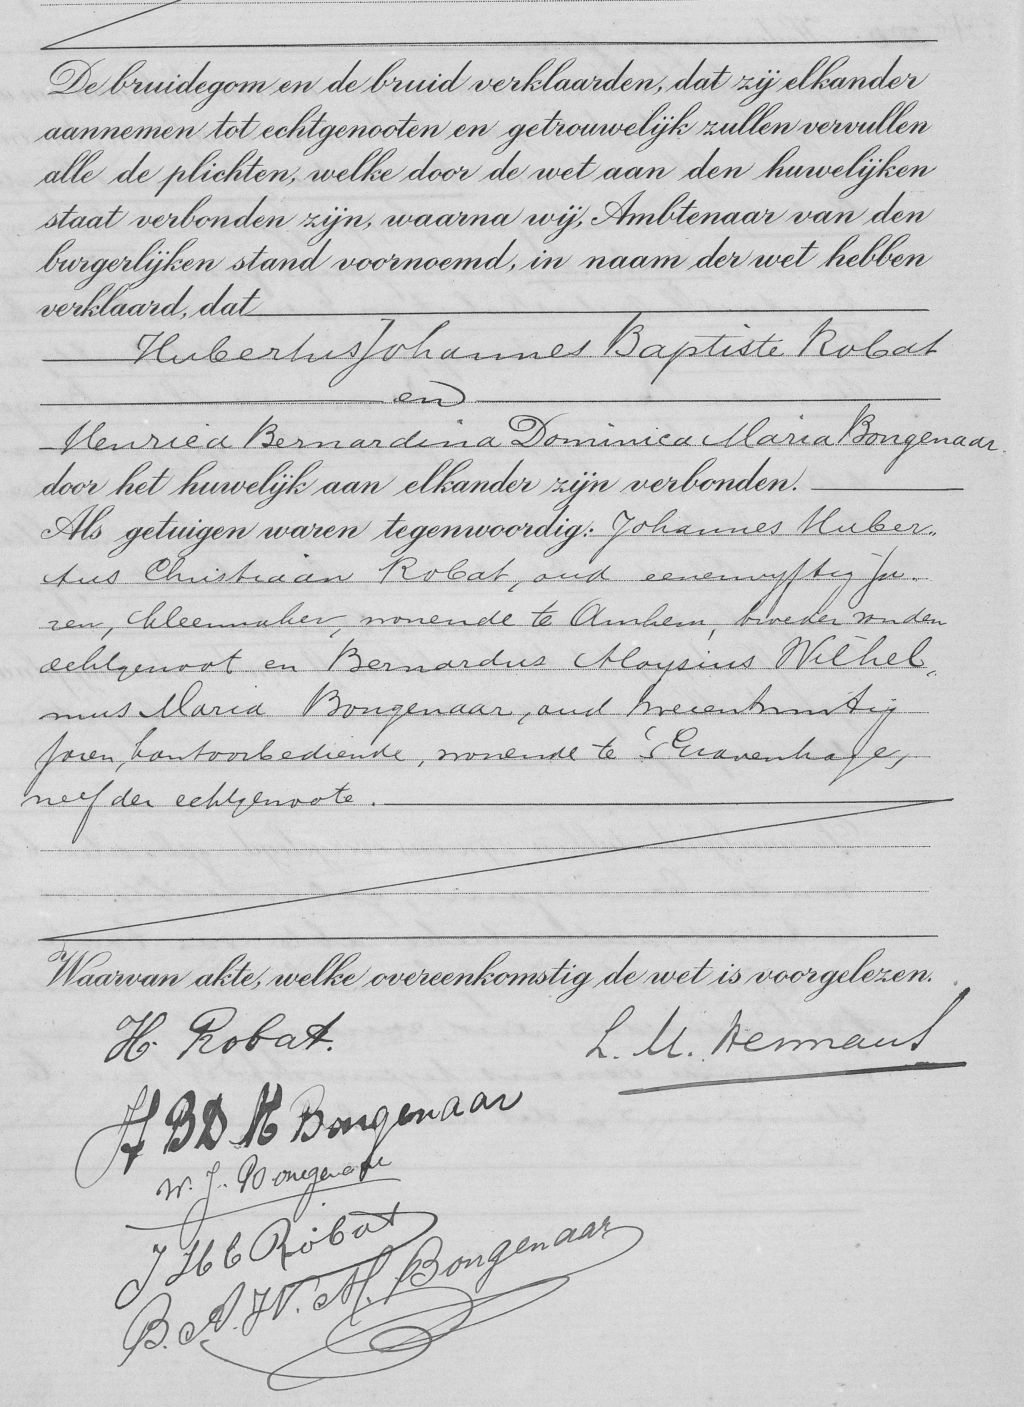 De bruidegom en de bruid verklaarden, dat zij elkander
aannemen tot echtgenooten en getrouwelijk zullen vervullen
alle de plichten, welke door de wet aan den huwelijken
staat verbonden zijn, waarna wij, Ambtenaar van den
burgerlijken stand voornoemd, in naam der wet hebben
verklaard, dat
Hubertus Johannes Baptiste Robat
en
Henrica Bernardina Dominica Maria Bongenaar
door het huwelijk aan elkander zijn verbonden.
Als getuigen waren tegenwoordig: Johannes Huber„
tus Christiaan Robat, oud eenenvyftig ja„
ren, kleermaker, wonende te Arnhem, broeder van den
echtgenoot en Bernardus Aloysius Wilhel„
mus Maria Bongenaar, oud tweeentwintig
jaren, kantoorbediende, wonende te 's Gravenhage,
neef der echtgenoote.
Waarvan akte, welke overeenkomstig de wet is voorgelezen.
H. Robat. L. M. Hermans
H B D M Bongenaar
W. J. Bongenaar
J H C Robat
B. A. W. M. Bongenaar